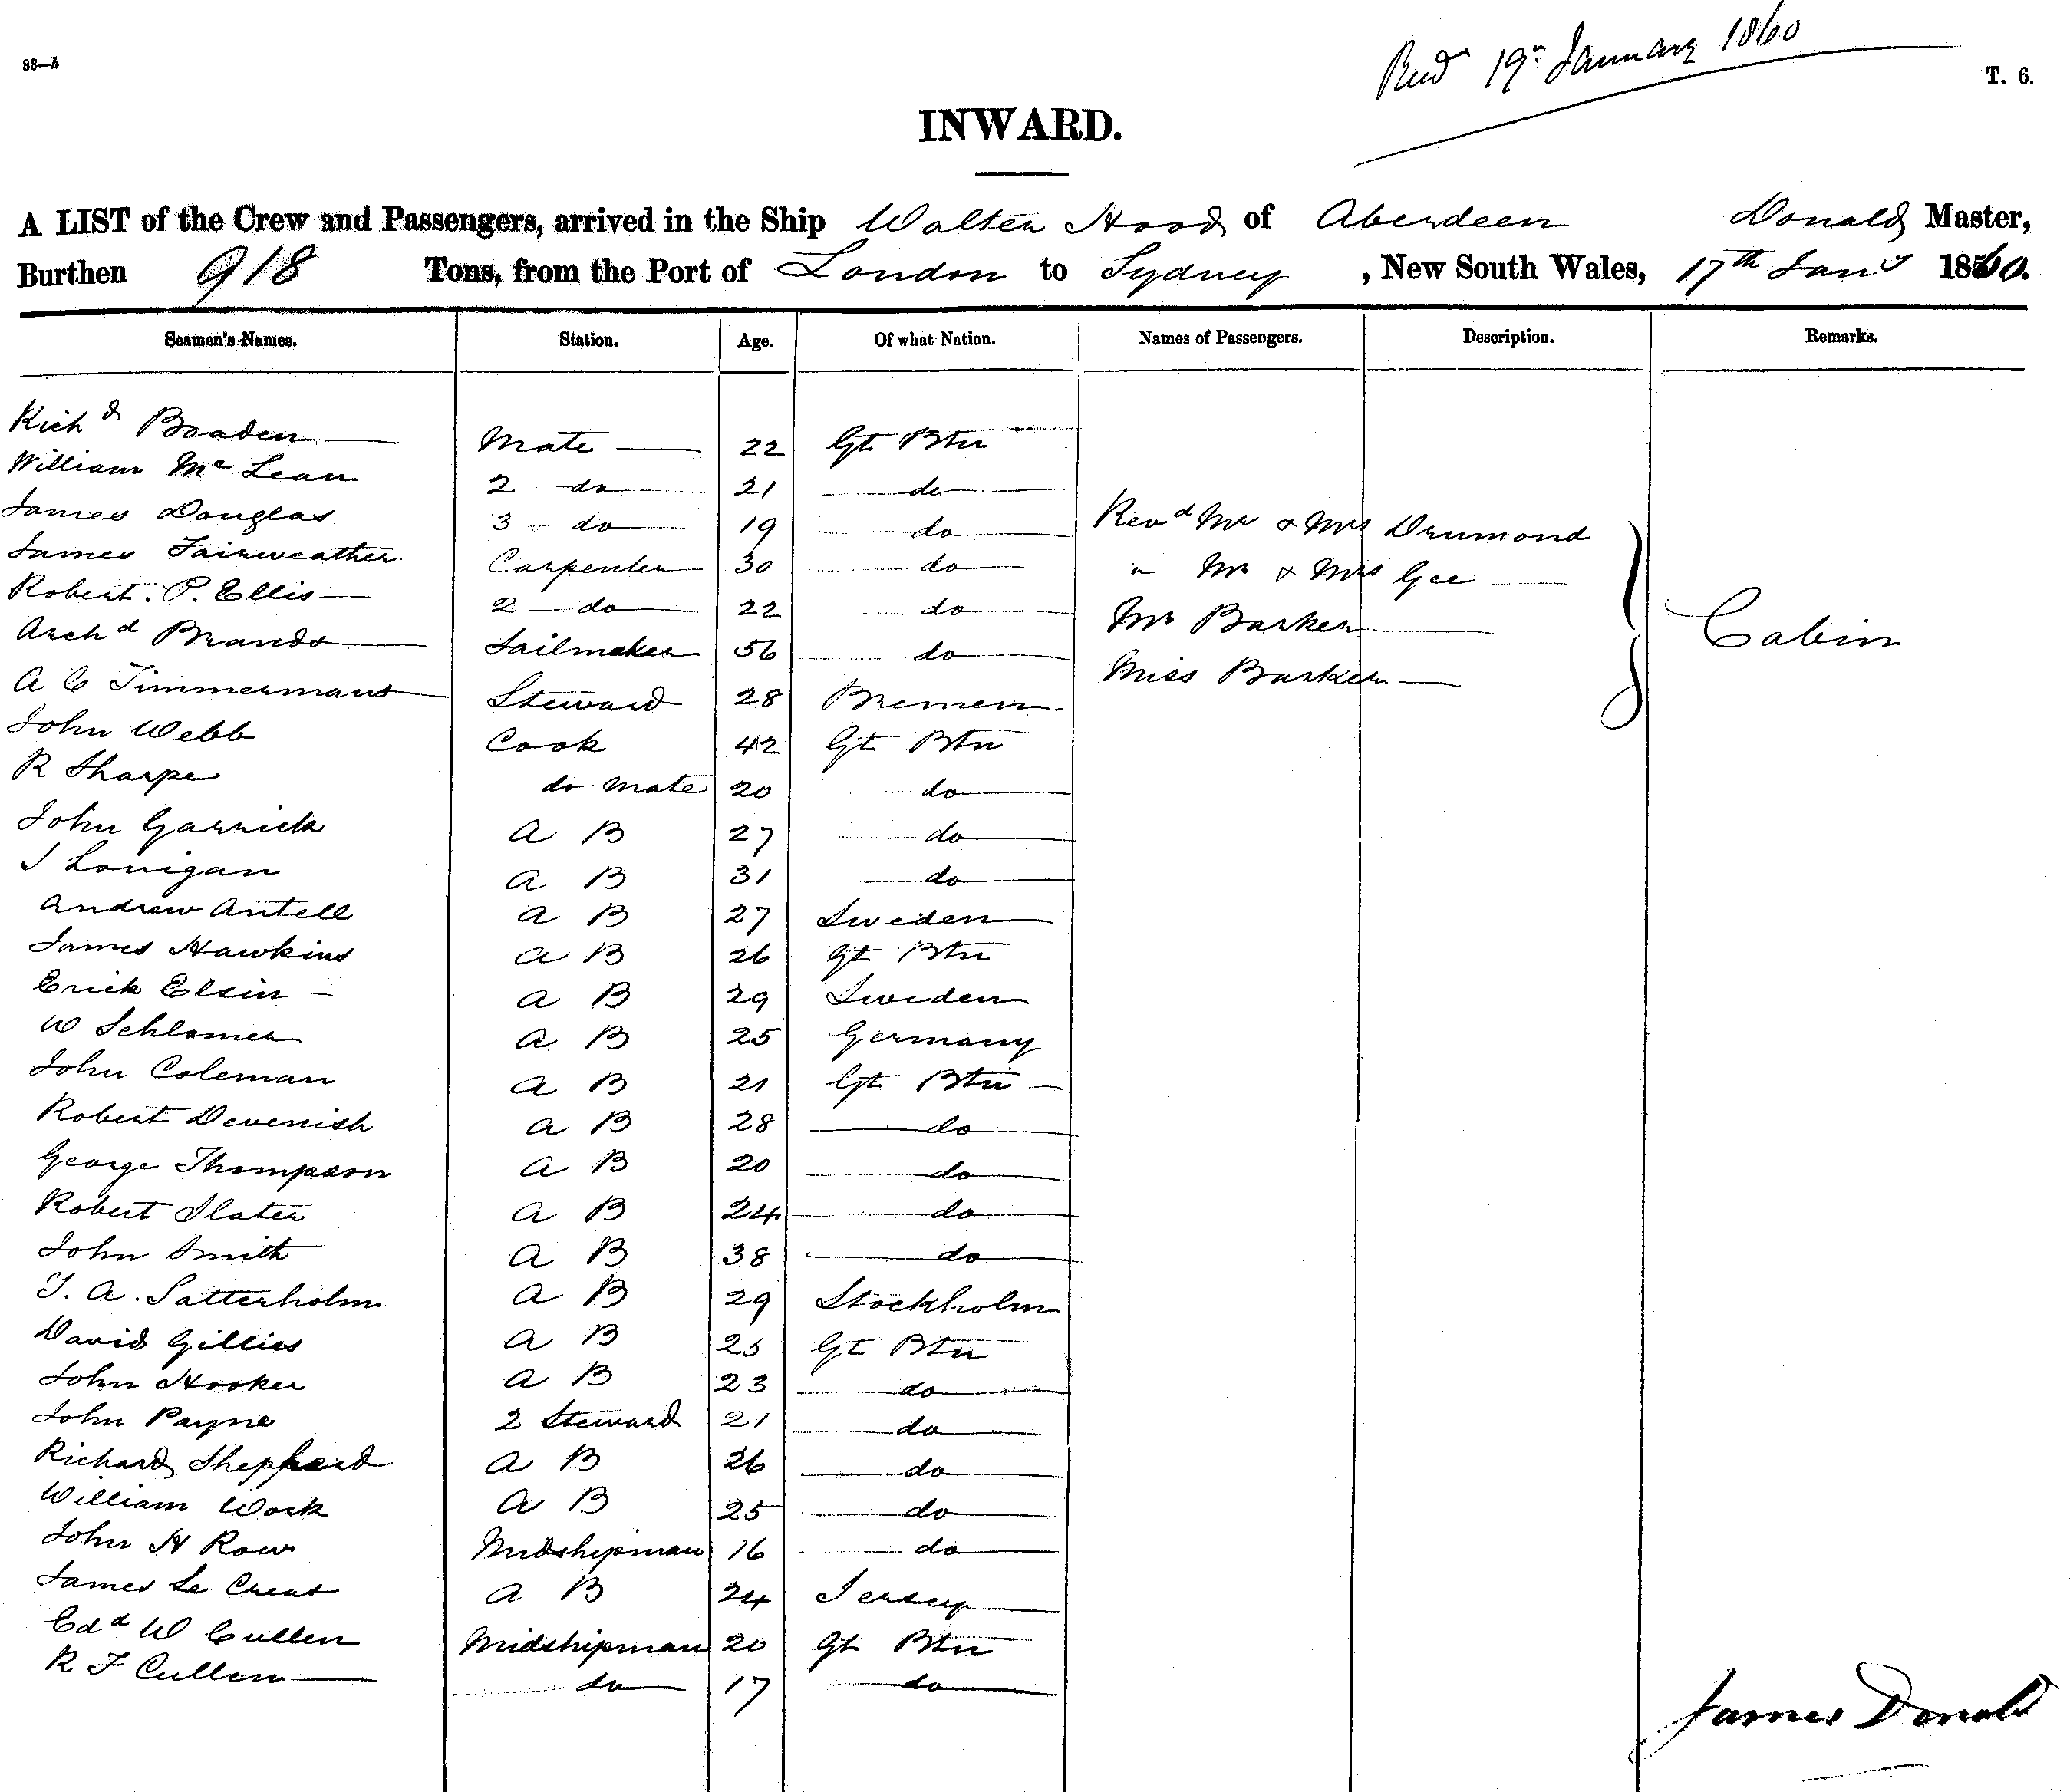 88—A
Recd 19th January 1860
T. 6.
INWARD.
A LIST of the Crew and Passengers, arrived in the Ship Walter Hood of Aberdeen Donald Master,
Burthen 918 Tons, from the Port of London to Sydney , New South Wales, 17th Jany 1860.
Seamen's Names. Station. Age. Of what Nation. Names of Passengers. Description. Remarks.
Richd Boaden Mate 22 Gt Btn
William McLean 2 do 21 do
James Douglas 3 do 19 do Revd Mr & Mrs Drumond
James Fairweather Carpenter 30 do " Mr & Mrs Gee
Robert. P. Ellis 2 do 22 do Mr Barker Cabin
Archd Brands Sailmaker 56 do Miss Barker
A C Timmermans Steward 28 Bremen
John Webb Cook 42 Gt Btn
R Sharpe do Mate 20 do
John Garrick A B 27 do
J Lonigan A B 31 do
Andrew Antell A B 27 Sweden
James Hawkins A B 26 Gt Btn
Erick Elsin A B 29 Sweden
W Schlomer A B 25 Germany
John Coleman A B 21 Gt Btn
Robert Devenish A B 28 do
George Thompson A B 20 do
Robert Slater A B 24 do
John Smith A B 38 do
T. A. Satterholm A B 29 Stockholm
David Gillies A B 25 Gt Btn
John Hooker A B 23 do
John Payne 2 Steward 21 do
Richard Shepherd A B 26 do
William Work A B 25 do
John H Row Midshipman 16 do
James Le A B 24 Jersey
Edd W Cullen Midshipman 20 Gt Btn
R F Cullen do 17 do
James Donald